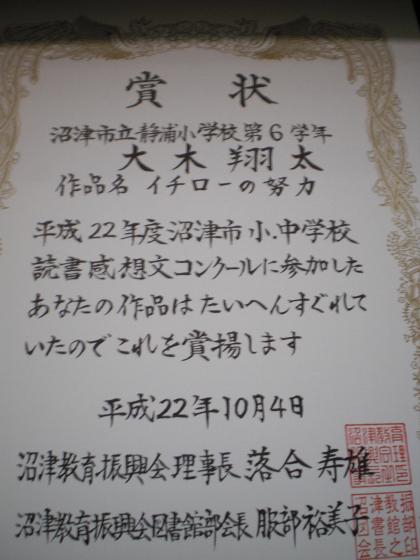 賞状
沼津市立静浦小学校第6学年
大木翔太
作品名 イチローの努力
平成22年度沼津市小・中学校
読書感想文コンクールに参加した
あなたの作品はたいへんすぐれて
いたのでこれを賞揚します
平成22年10月4日
沼津教育振興会理事長 落合寿雄
沼津教育振興会図書館部会長 服部裕美子